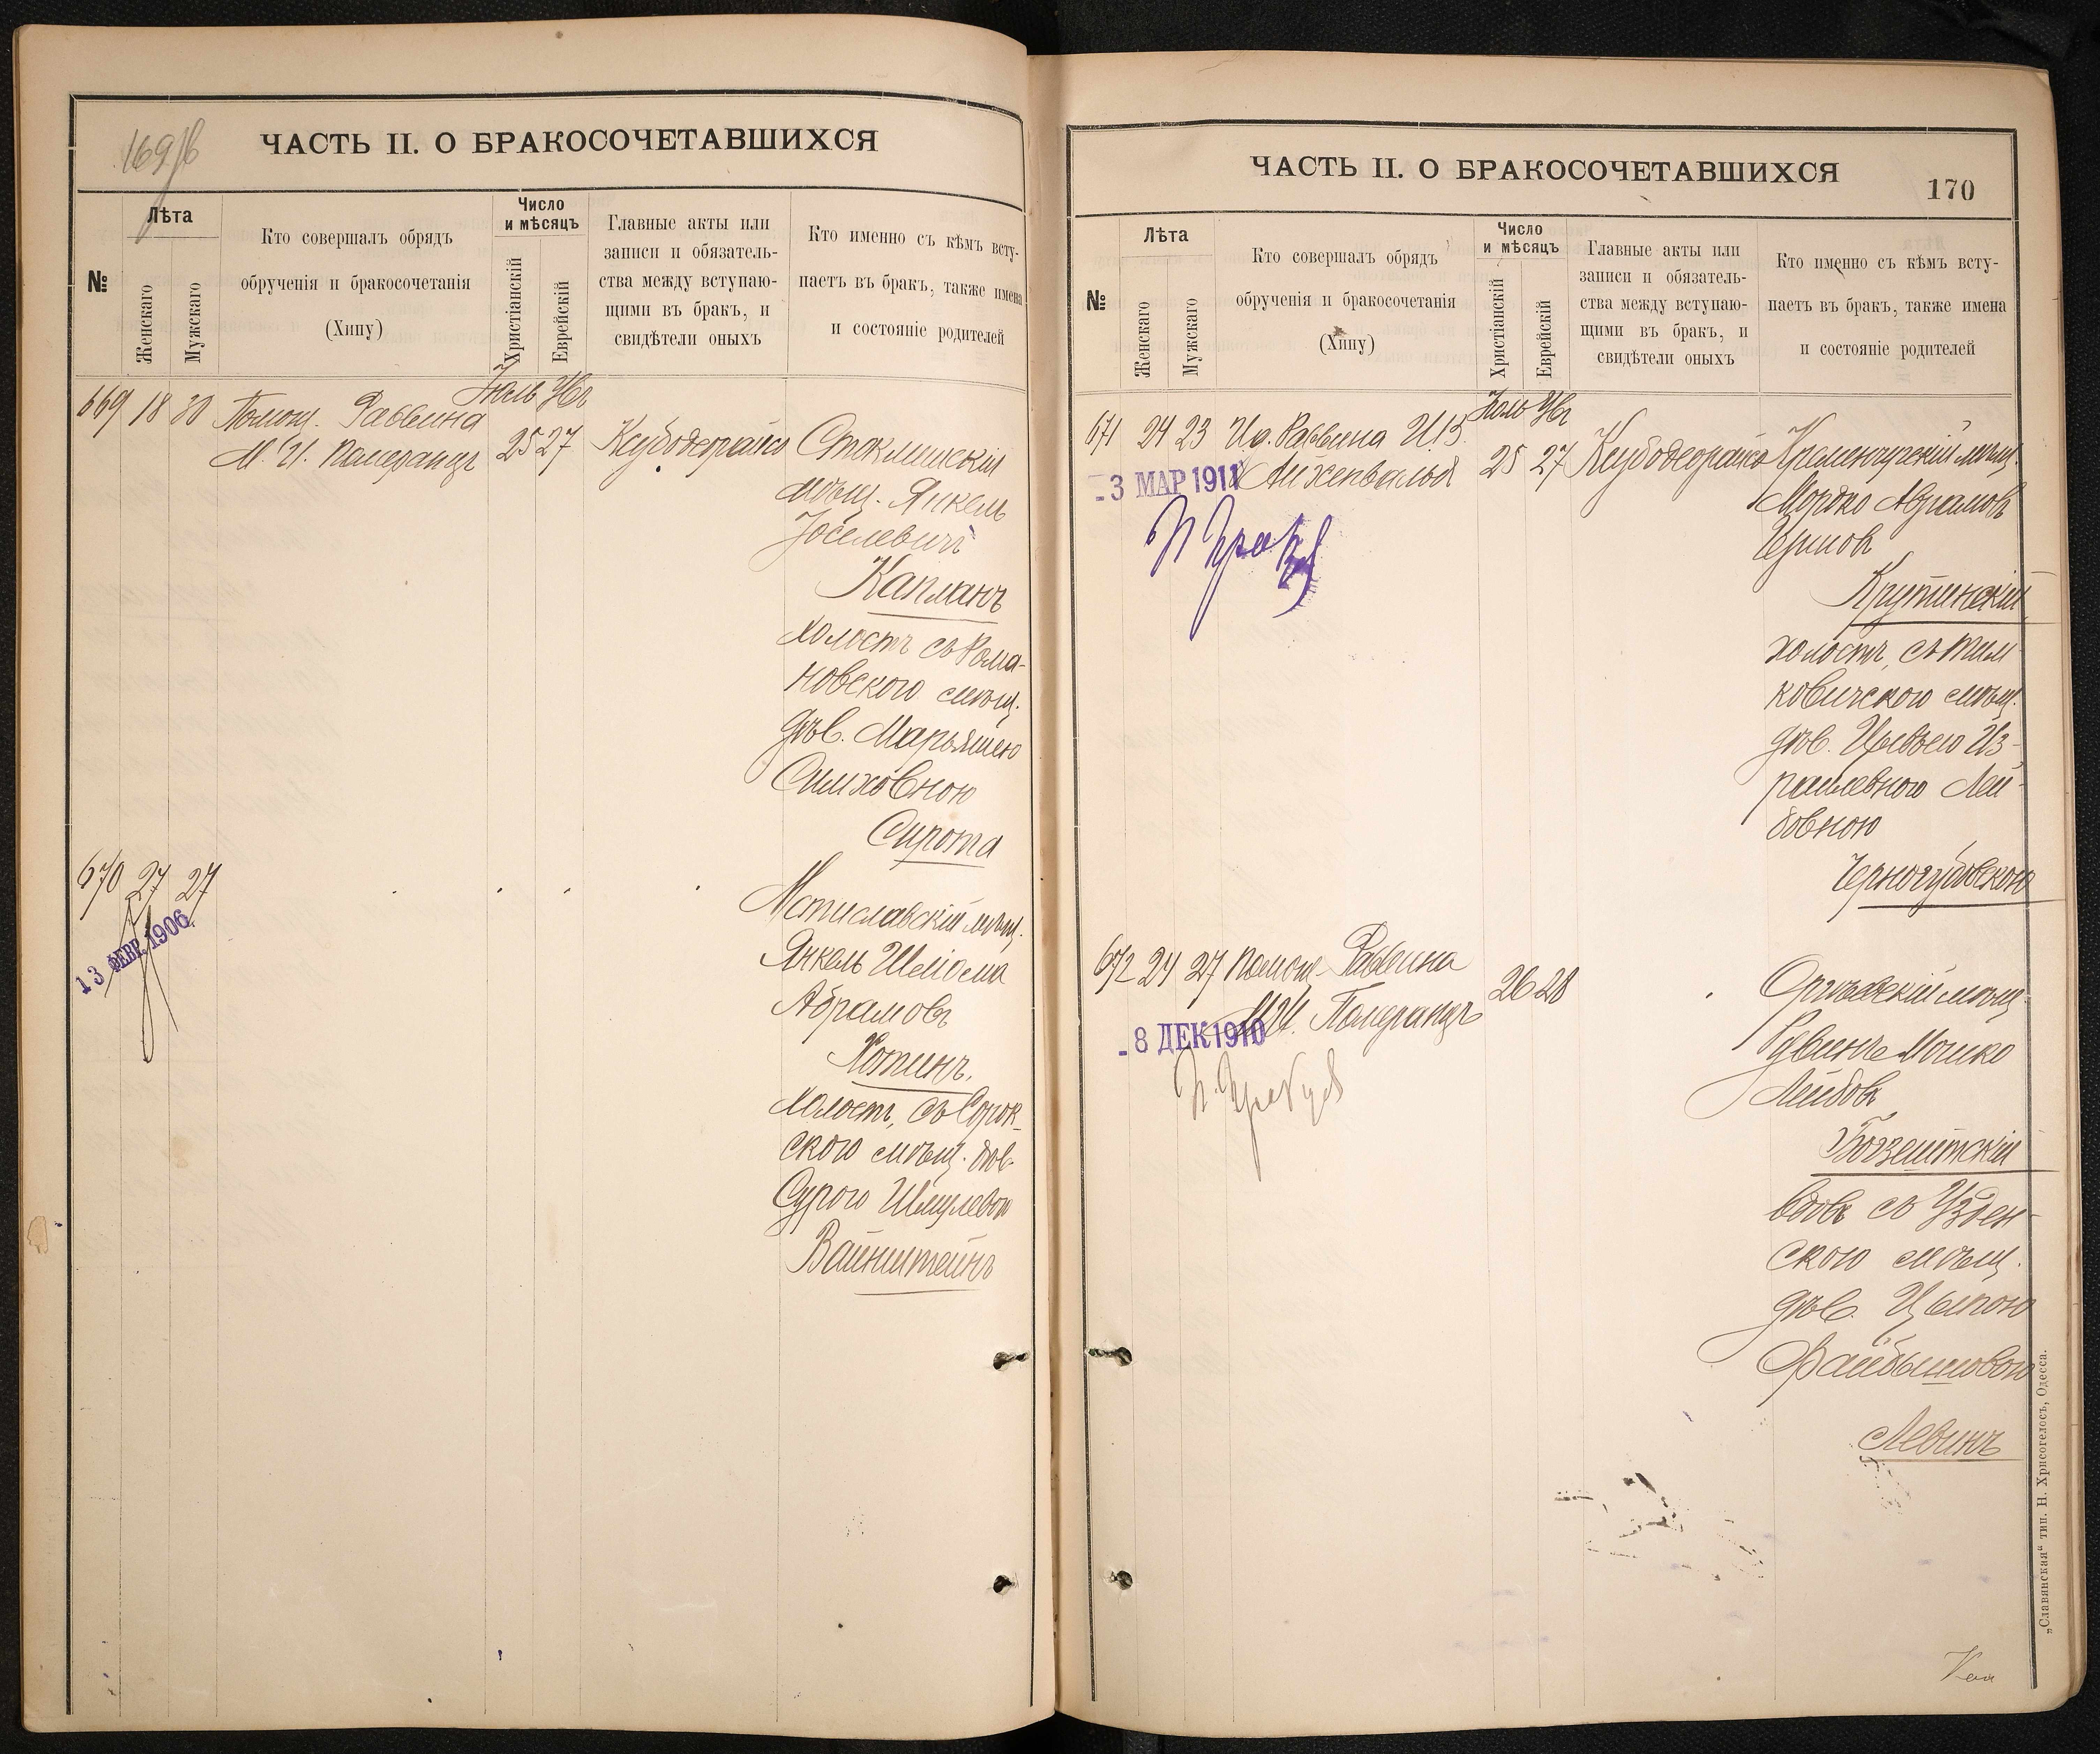 169/б
ЧАСТЬ II. О БРАКОСОЧЕТАВШИХСЯ
№
Лѣта
Женскаго
Мужскаго
Кто совершалъ обрядъ
обрученія и бракосочетанія
(Хипу)
Число
и мѣсяцъ
Христіанскій
Еврейскій
Главные акты или
записи и обязатель-
ства между вступаю-
щими въ бракъ, и
свидѣтели оныхъ
Кто именно съ кѣмъ всту-
паетъ въ бракъ, также имена
и состояніе родителей
669 18 30 Помощ. Раввина
М. И. Померанцъ
Іюль
25 27
Стоклишскій
мѣщ. Янкель
Іоселевичъ
Капланъ
холостъ съ Рома-
новского мѣщ.
дѣв. Марьяшею
Симховною
Сирота
670 27 27
13 ФЕВР. 1906
Мстиславскій мѣщ.
Янкель Шліома
Абрамовъ
Хотинъ.
холостъ, съ Сорок-
ского мѣщ. дѣв.
Сурою Шмулевою
Вайнштейнъ
ЧАСТЬ II. О БРАКОСОЧЕТАВШИХСЯ
170
№
Лѣта
Женскаго
Мужскаго
Кто совершалъ обрядъ
обрученія и бракосочетанія
(Хипу)
Число
и мѣсяцъ
Христіанскій
Еврейскій
Главные акты или
записи и обязатель-
ства между вступаю-
щими въ бракъ, и
свидѣтели оныхъ
Кто именно съ кѣмъ всту-
паетъ въ бракъ, также имена
и состояніе родителей
671 24 23 Ио. Раввина
Айхенвальд
- 3 МАР 1911
Іюль
25 27
Кременчугскій мѣщ.
Мордко Абрамовъ
Беримовъ
Крутинскій
холостъ, съ Тим
ковичского мѣщ.
дѣв. Цивьею Из-
раилевною Лей-
бовною
Черногубовскою
672 24 27 Помощ. Раввина
М. И. Померанцъ
- 8 ДЕК 1910
26 28
Оргѣевскій мѣщ.
Рувинъ Мошко
Лейбовъ
Богзештскій
вдовъ съ Узден-
скою мѣщ.
дѣв. Ципою
Файбышовою
Левинъ
„Славянская“ тип. Н. Хрисогелосъ, Одесса.